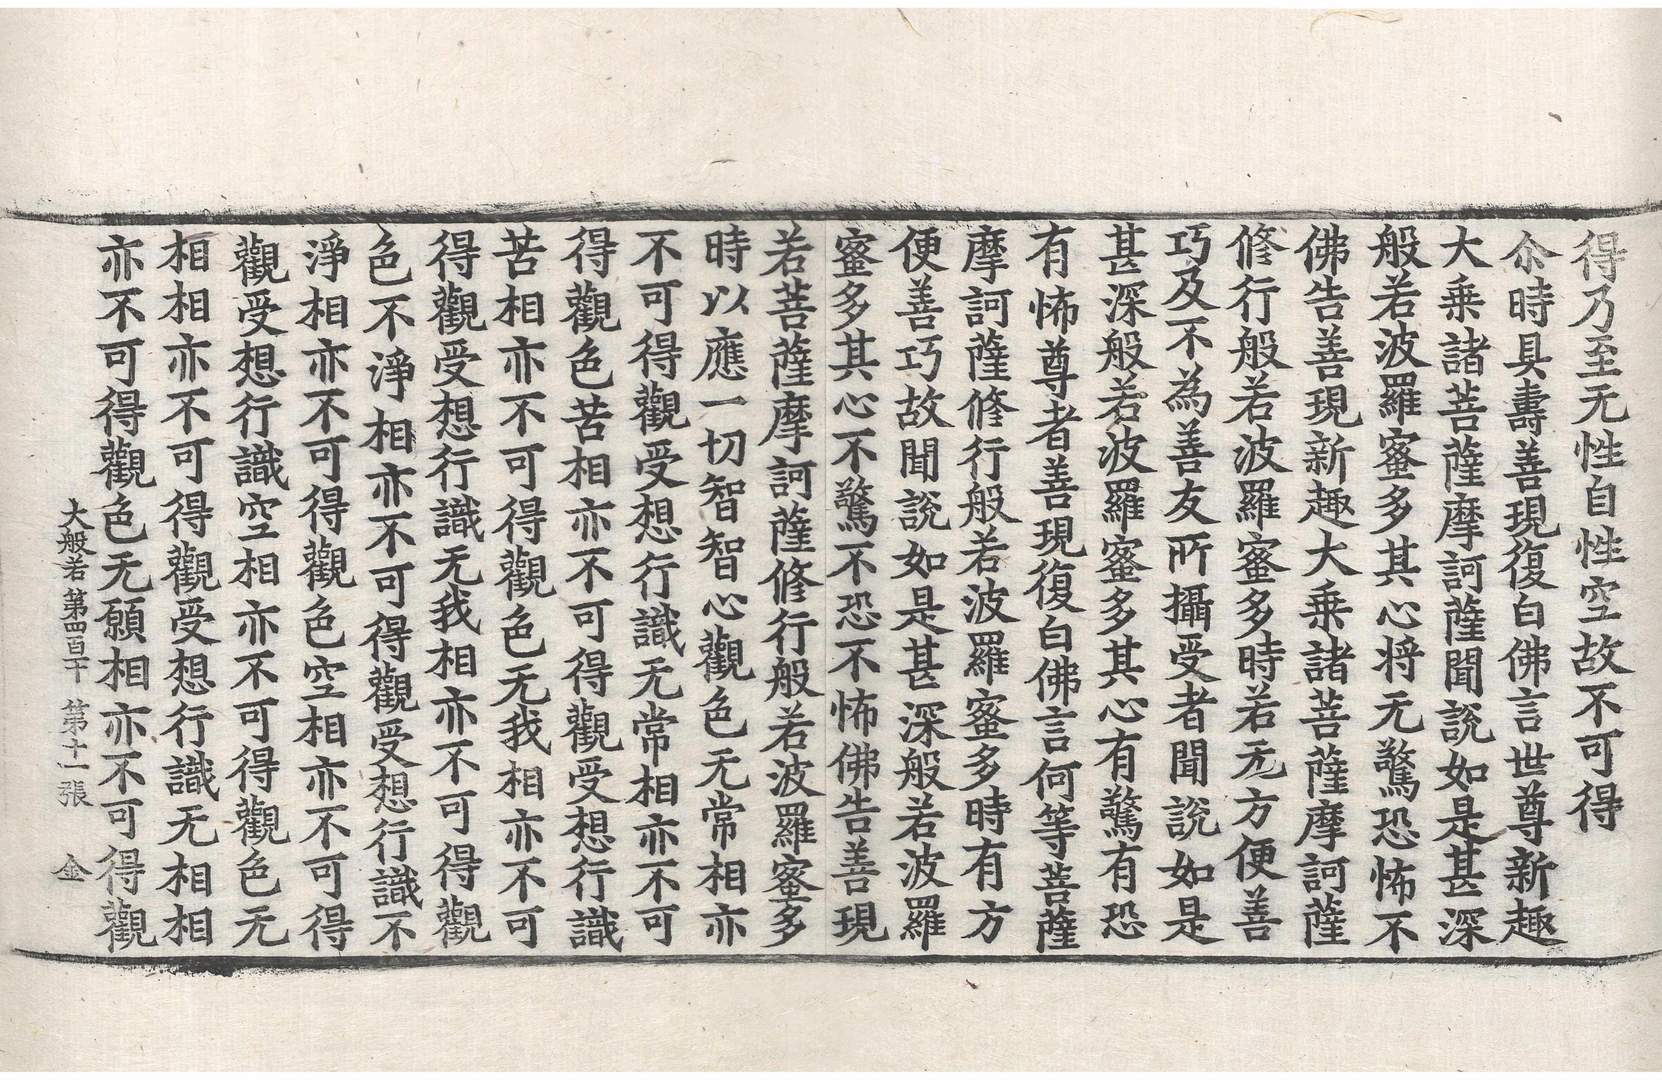 得乃至无性自性空故不可得
尒時具壽善現復白佛言世尊新趣
大乗諸菩薩摩訶薩聞說如是甚深
般若波羅蜜多其心将无驚恐怖不
佛告善現新趣大乗諸菩薩摩訶薩
修行般若波羅蜜多時若无方便善
巧及不為善友所攝受者聞說如是
甚深般若波羅蜜多其心有驚有恐
有怖尊者善現復白佛言何等菩薩
摩訶薩修行般若波羅蜜多時有方
便善巧故聞說如是甚深般若波羅
蜜多其心不驚不恐不怖佛告善現
若菩薩摩訶薩修行般若波羅蜜多
時以應一切智智心觀色无常相亦
不可得觀受想行識无常相亦不可
得觀色苦相亦不可得觀受想行識
苦相亦不可得觀色无我相亦不可
得觀受想行識无我相亦不可得觀
色不淨相亦不可得觀受想行識不
淨相亦不可得觀色空相亦不可得
觀受想行識空相亦不可得觀色无
相相亦不可得觀受想行識无相相
亦不可得觀色无願相亦不可得觀
大般若第四百十 第十一張 金